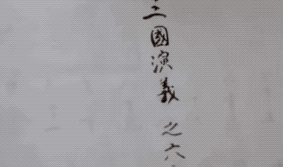 三國演義 之六